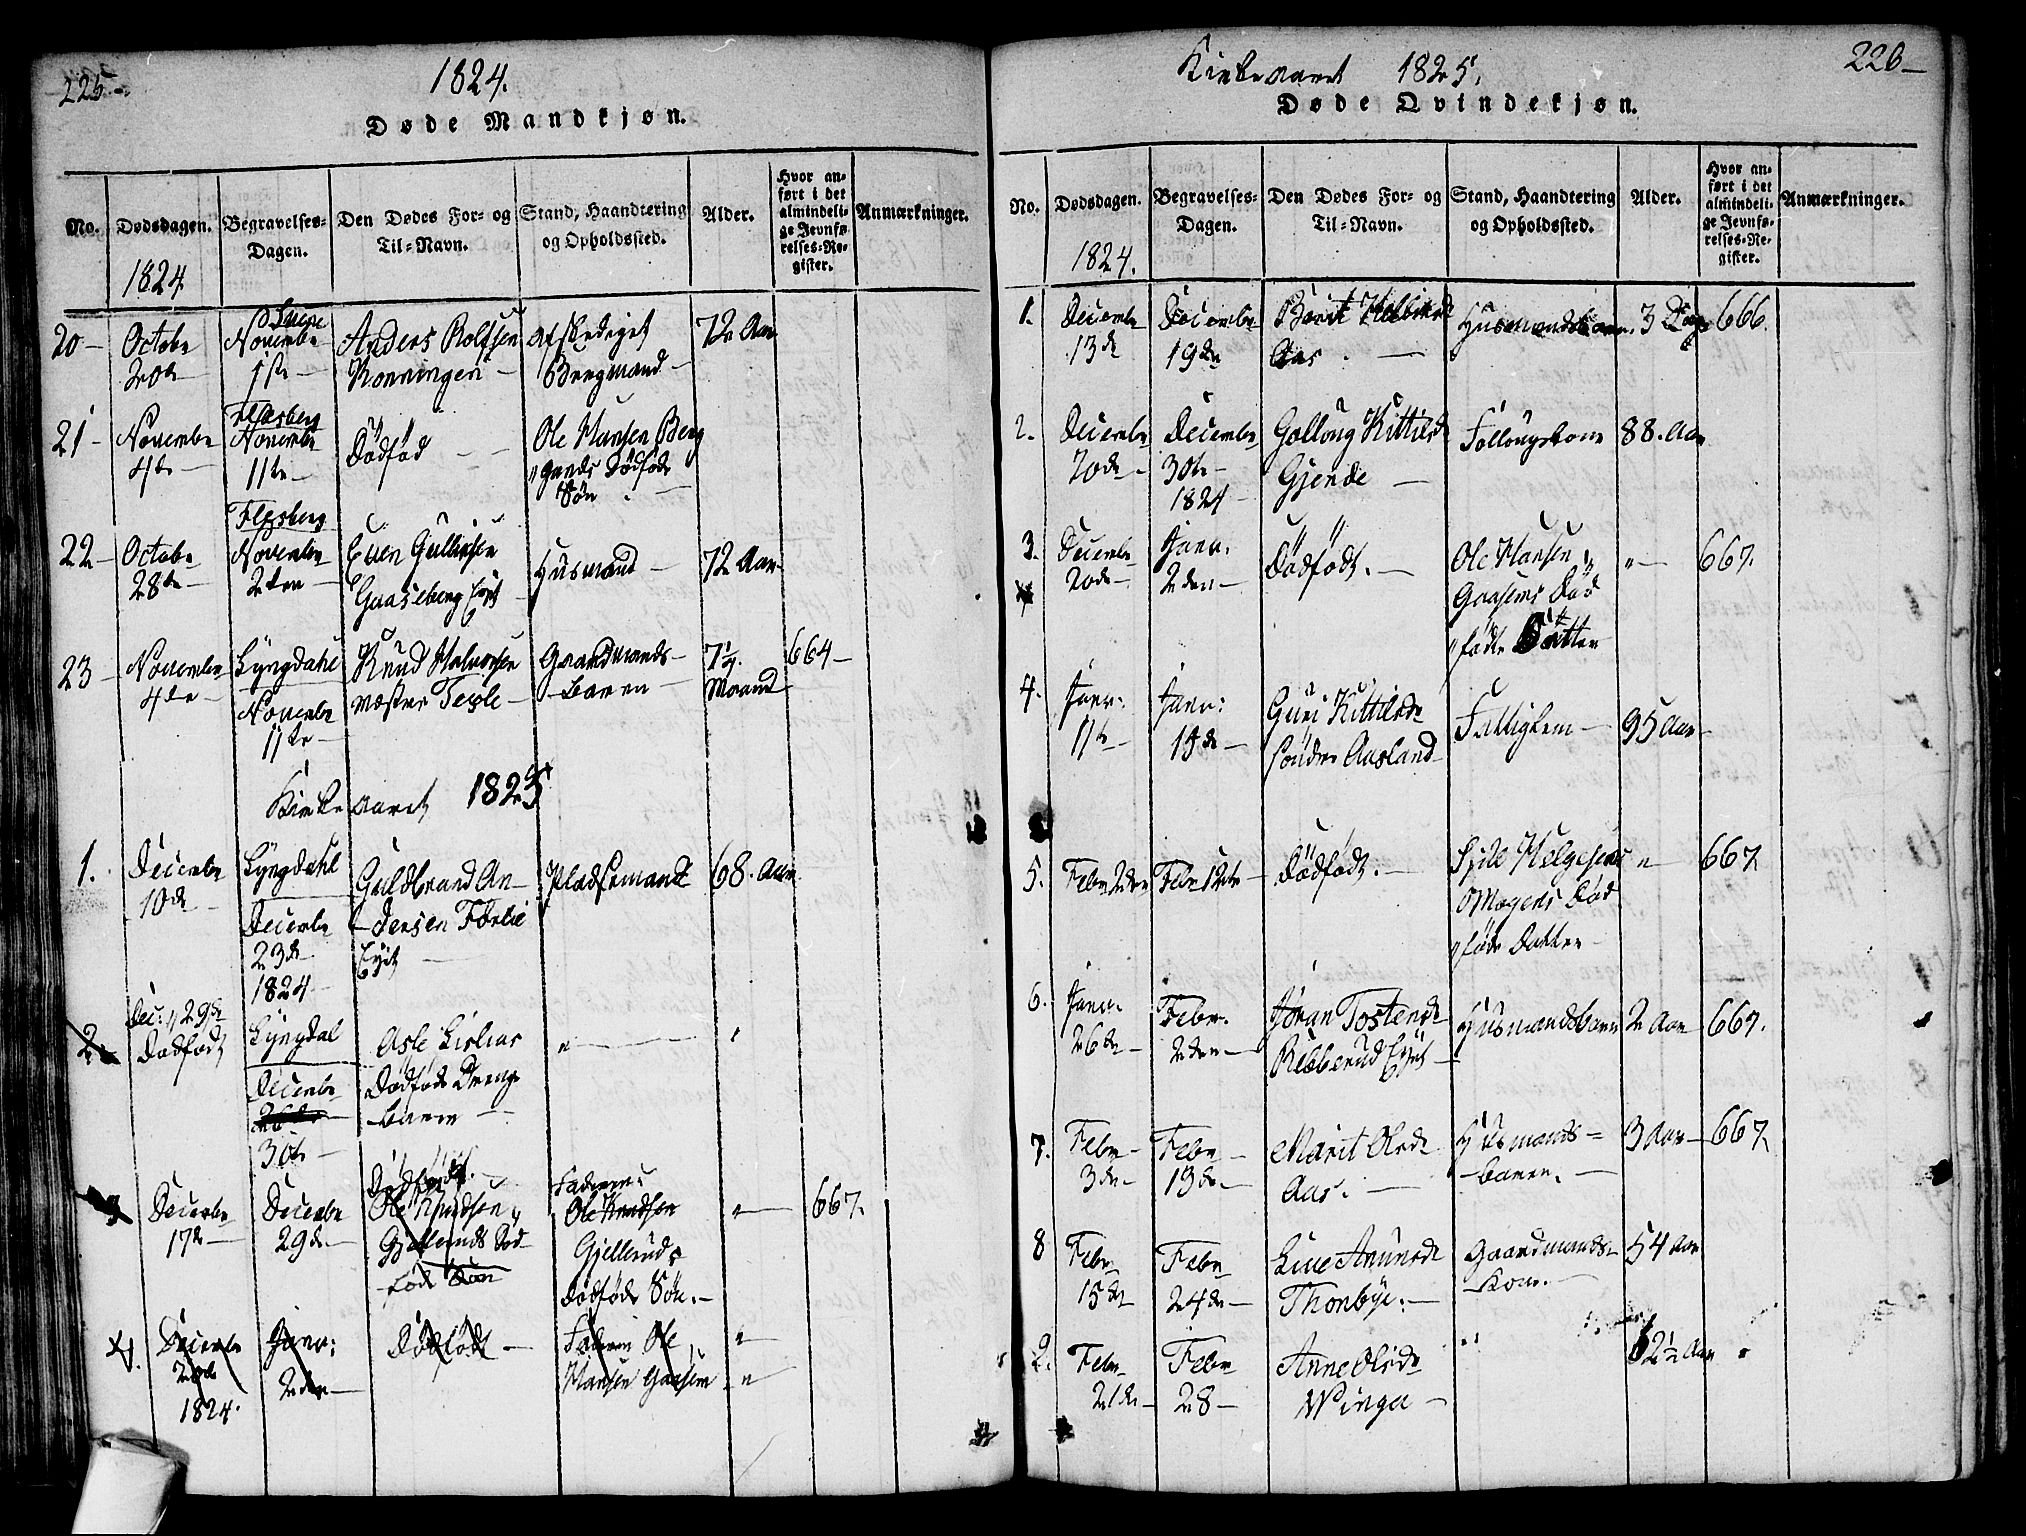 225.
1824.
Døde Mandkjøn.
No.
Dødsdagen.
Begravelses-
Dagen.
Den Dødes For- og
Til-Navn.
Stand, Haandtering
og Opholdssted.
Alder.
Hvor an-
ført i det
almindeli-
ge Jevnfø-
relses-Re-
gister.
Anmærkninger.
1824
20
Octobr
20de
Novembr
1ste
Anders Rolfsen
Konningen
afskediget
Bergmand
72 Aar
21
Novembr
4de
Flesberg
Novembr
11te
Dødfød
Ole Hansen Berg
Dødføde
Søn
22
Octobr
28de
Flesberg
Novembr
2den
Even Gulliksen
Gaaseberg Eyet
Husmand
72 Aar
23
Novembr
4de
Lyngdahl
Novembr
11te
Knud Halvorsen
Gaardmands-
barn
7 1/4
Maaned
664
Kirkeaaret 1825
1.
Decembr
10de
Lyngdahl
Decembr
23de
1824
Guldbrand An-
dersen
Eyet
Pladsemand
68. Aar
2
Dec. 29de
Dødfødt
Lyngdal
Decembr
26de
30te
Asle Lislias
Dødføde Drenge
barn
3
Decembr
17de
Decembr
29de
Dødfødt.
Ole Knudsen
Gjelleruds Død-
føde Søn
Faderen:
Ole Knudsen
Gjelleruds
dødføde Søn.
667.
4.
Decembr
20de
1824.
Janv:
2den
Dødfødt
Faderen Ole
Hansen Gaasem
226
Kirkeaaret 1825.
Døde Qvindekjøn.
No.
Dødsdagen.
Begravelses-
Dagen.
Den Dødes For- og
Til-Navn.
Stand, Haandtering
og Opholdssted.
Alder.
Hvor an-
ført i det
almindeli-
ge Jevnfø-
relses-Re-
gister.
Anmærkninger.
1824.
1.
Decembr
13de
Decembr
19de
Berit
Aas.
Husmandsbarn.
3 Dage
666.
2.
Decembr
20de
Decembr
30te
1824
Golloug Kittilsdr
Gjerde
Follougskone
88. Aar
3.
Decembr
20de
Janv.
2den
Dødfødt.
Ole Hansen
Gaasems Død
føde Datter
667.
4.
Janv:
11te
Janv:
15de
Guri Kittilsdr
søndre Aasland
Fattiglem
95 Aar
5.
Febr 2den
Febr 12te
Dødfødt.
Helgesens
Mogens Død
føde Datter
667
6.
Janv.
26de
Febr.
2den
Jøran Tostensdr
Ribberud Eyet
Husmandsbarn
2 Aar
667.
7.
Febr
3de
Febr
13de
Marit Olsdr
Aas.
Husmands-
barn.
3 Aar
667.
8
Febr
15de
Febr
24de
Live Amundsdr
Thonbye.
Gaardmands-
Kone.
54 Aar
9.
Febr
21de
Febr
28
Anne Olsdr
Winga
62 1/2 Aar